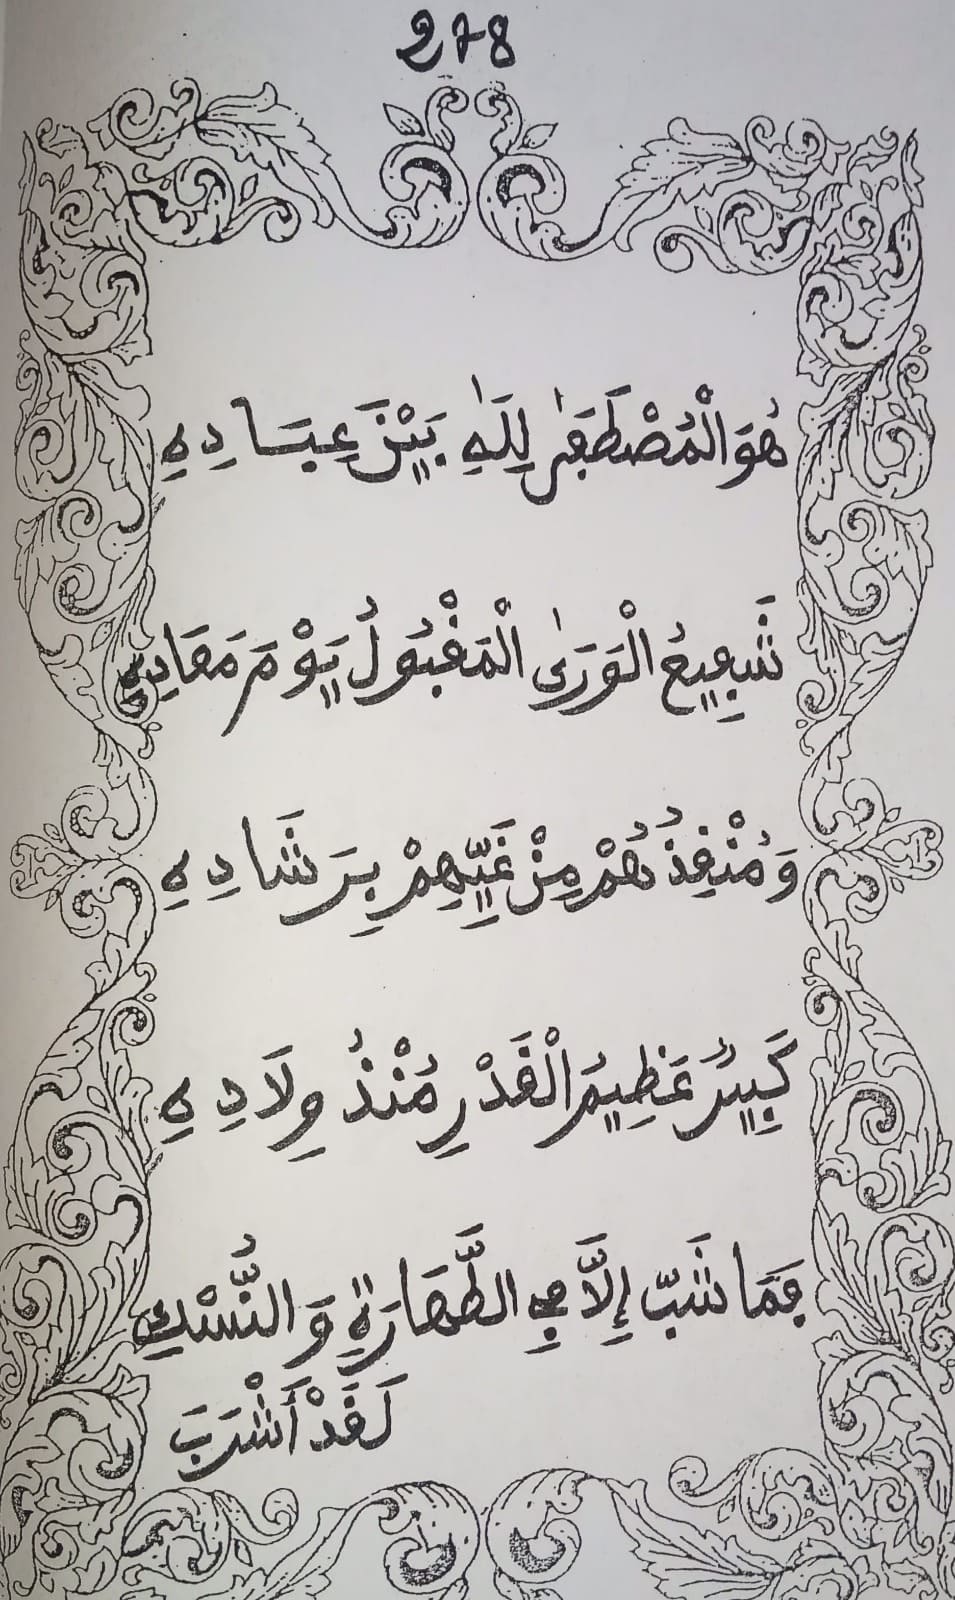 278
هُوَ الْمُصْطَفَىٰ لِلَّهِ بَيْنَ عِبَادِهِ
شَفِيعُ الْوَرَىٰ الْمَقْبُولُ يَوْمَ مَعَادِهِ
وَمُنْقِذُهُمْ مِنْ غَيِّهِمْ بِرَشَادِهِ
كَبِيرٌ عَظِيمُ الْقَدْرِ مُنْذُ وِلَادِهِ
فَمَا شَبَّ إِلَّا فِي الطَّهَارَةِ وَالنُّسْكِ
لَقَدْ أَشْرَبَ